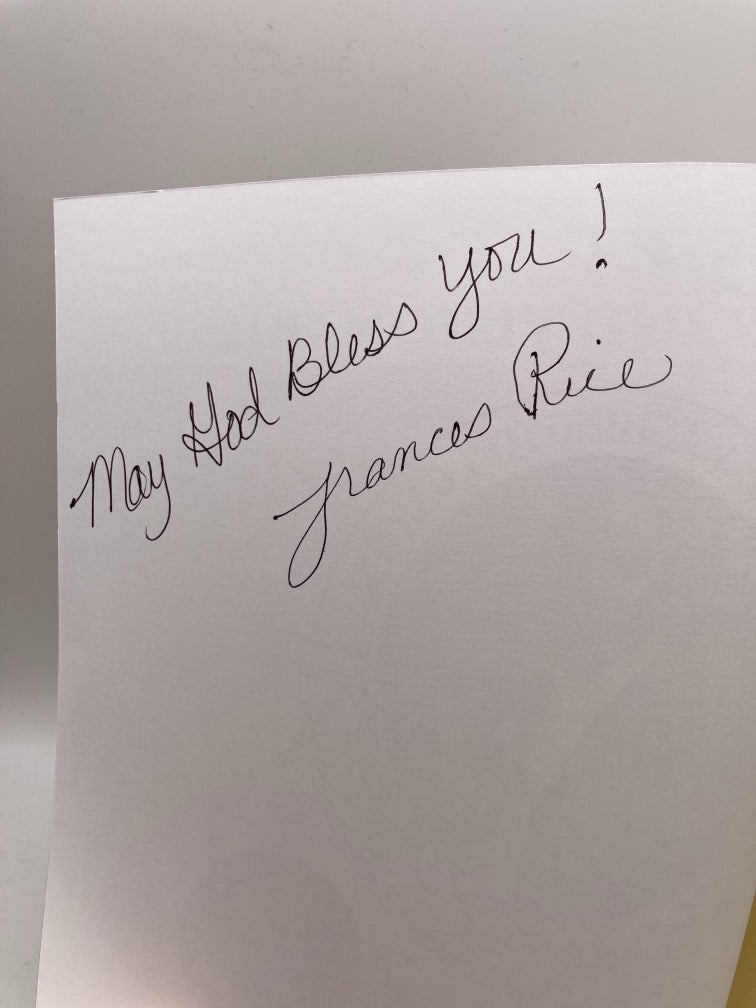 May God Bless You!
Frances Rice